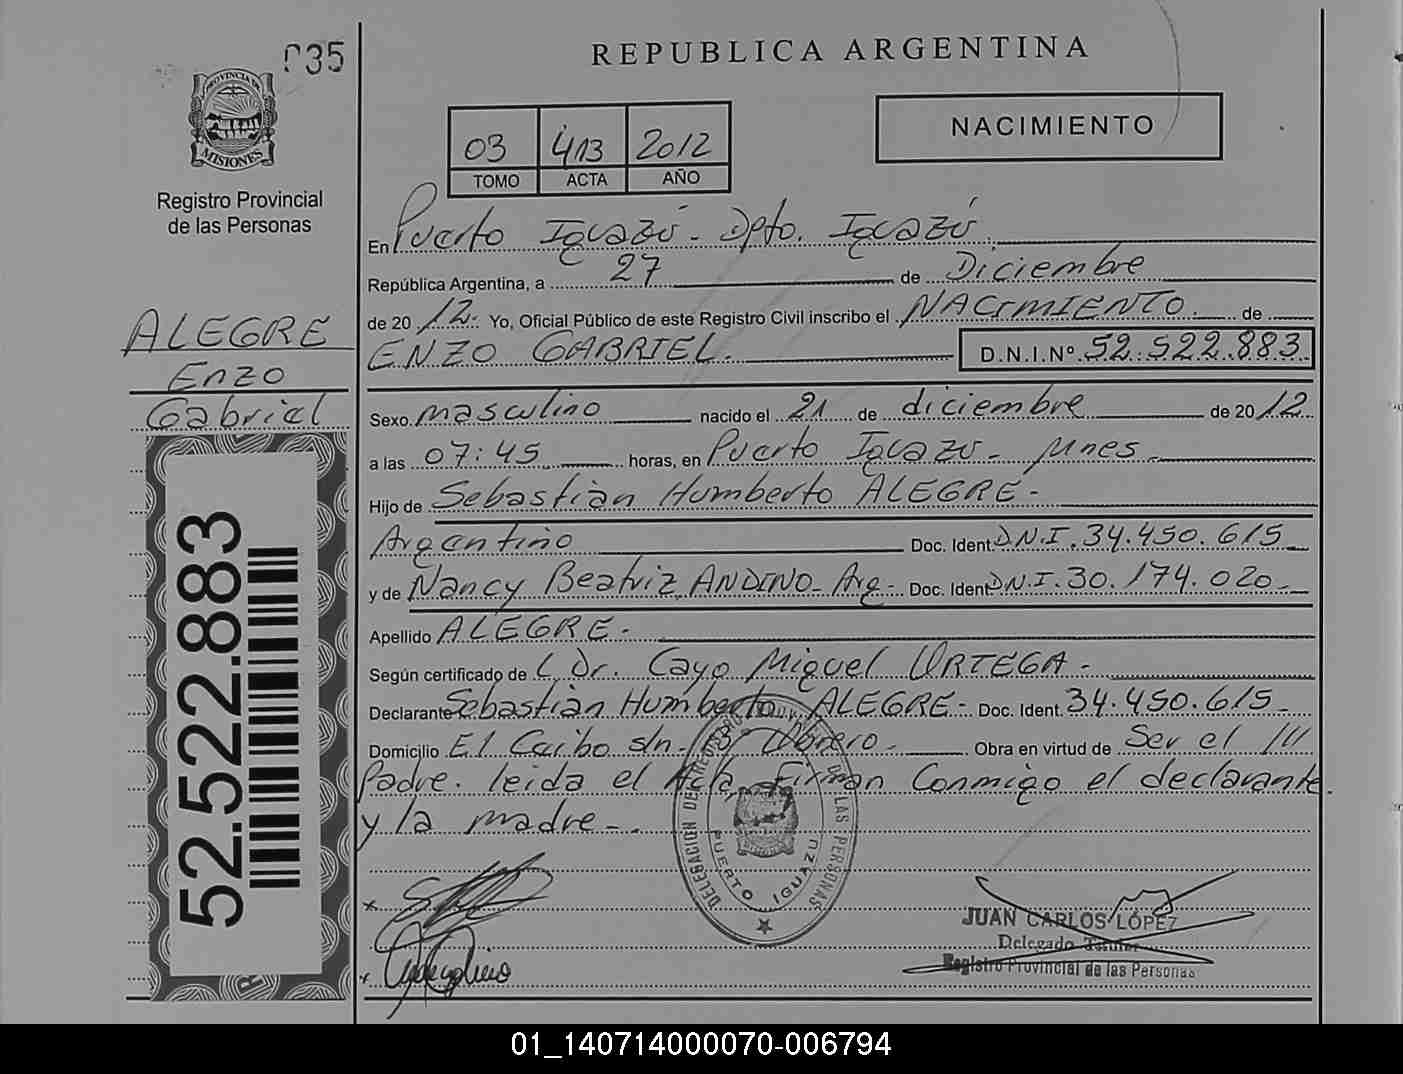 035
PROVINCIA DE
MISIONES
Registro Provincial
de las Personas
ALEGRE
Enzo
Gabriel
52.522.883
REPUBLICA ARGENTINA
NACIMIENTO
03 413 2012
TOMO ACTA AÑO
En Puerto Iguazú - Dpto. Iguazú
República Argentina, a 27 de Diciembre
de 2012. Yo, Oficial Público de este Registro Civil inscribo el NACIMIENTO. de
ENZO GABRIEL. D.N.I.Nº 52.522.883
Sexo masculino nacido el 21 de diciembre de 2012
a las 07:45 horas, en Puerto Iguazú - Mnes -
Hijo de Sebastián Humberto ALEGRE -
Argentino Doc. Ident. D.N.I. 34.450.615
y de Nancy Beatriz ANDINO - Arg - Doc. Ident. D.N.I. 30.174.020 -
Apellido ALEGRE -
Según certificado de Dr. Cayo Miguel ORTEGA -
Declarante Sebastián Humberto ALEGRE - Doc. Ident. 34.450.615 -
Domicilio El Caibo s/n - Bº Obrero - Obra en virtud de Ser el
Padre. leida el Acta, Firman Conmigo el declarante
y la madre -.
DELEGACION DEL REGISTRO PROV. DE LAS PERSONAS
PUERTO IGUAZU
JUAN CARLOS LÓPEZ
Delegado Titular
Registro Provincial de las Personas
01_140714000070-006794